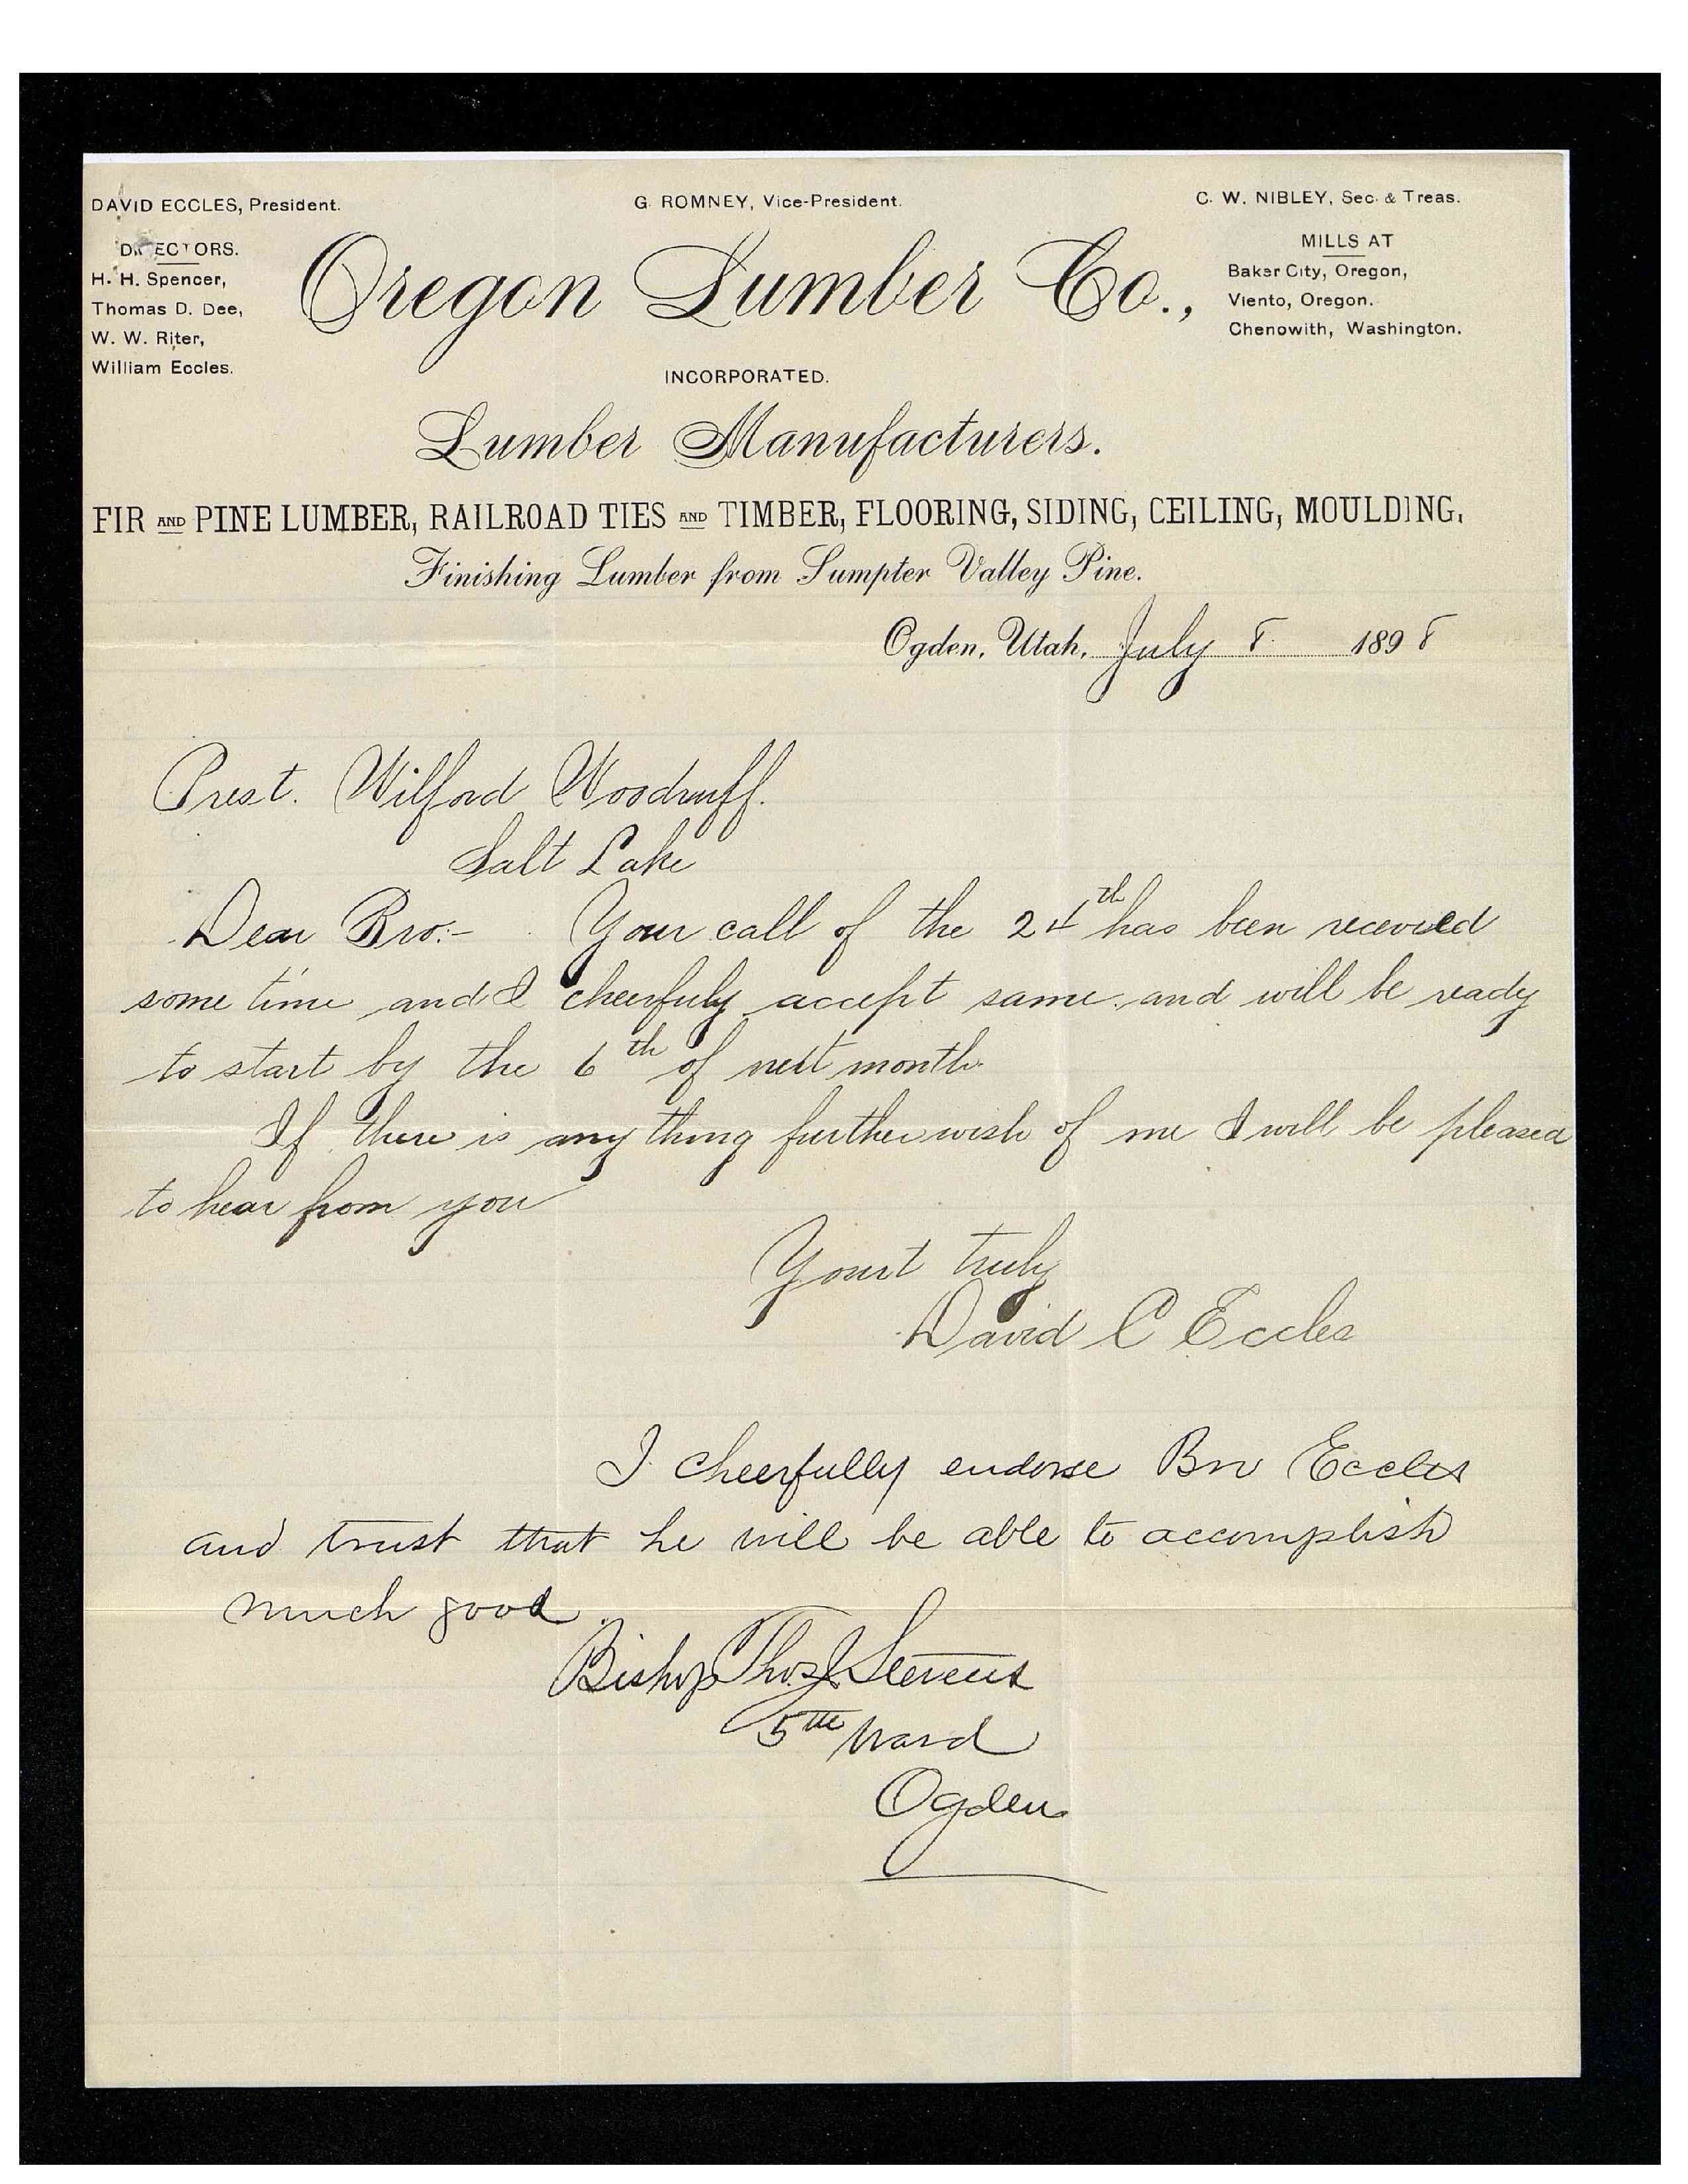 DAVID ECCLES, President.
G. ROMNEY, Vice-President.
C. W. NIBLEY, Sec. & Treas.
DIRECTORS.
H. H. Spencer,
Thomas D. Dee,
W. W. Riter,
William Eccles.
Oregon Lumber Co.,
MILLS AT
Baker City, Oregon,
Viento, Oregon.
Chenowith, Washington.
INCORPORATED.
Lumber Manufacturers.
FIR AND PINE LUMBER, RAILROAD TIES AND TIMBER, FLOORING, SIDING, CEILING, MOULDING,
Finishing Lumber from Sumpter Valley Pine.
Ogden, Utah, July 8 1898
Prest. Wilford Woodruff.
Salt Lake
Dear Bro:- Your call of the 24th has been received
some time and I cheerfuly accept same and will be ready
to start by the 6th of next month
If there is any thing further wish of me I will be pleased
to hear from you
Yourt truly
David C Eccles
I cheerfully endorse Bro Eccles
and trust that he will be able to accomplish
much good
Bishop Thos J Stevens
5th Ward
Ogden